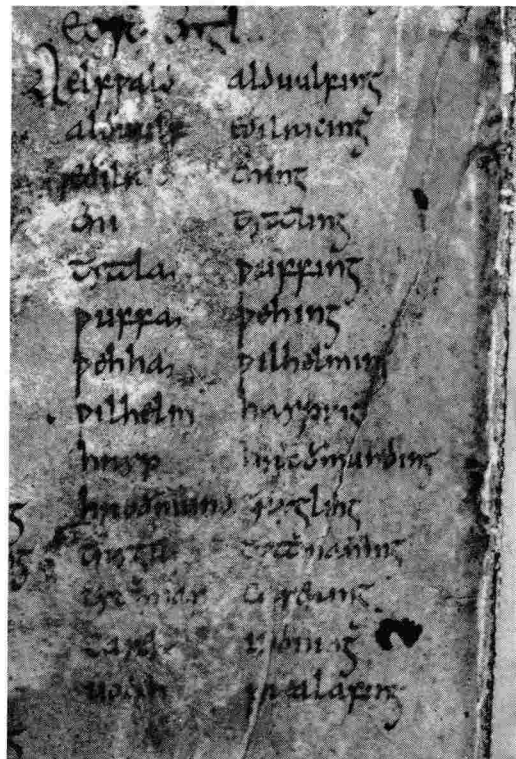 Aelfƿald alduulfing
alduulf eðilricing
eðilric ening
eni tyttling
tyttla ƿuffing
ƿuffa ƿehing
ƿehha ƿilhelming
ƿilhelm hryping
hryp hroðmunding
hroðmund trygling
trygil tyttmaning
tyttman casering
caser uodning
uoden frealafing